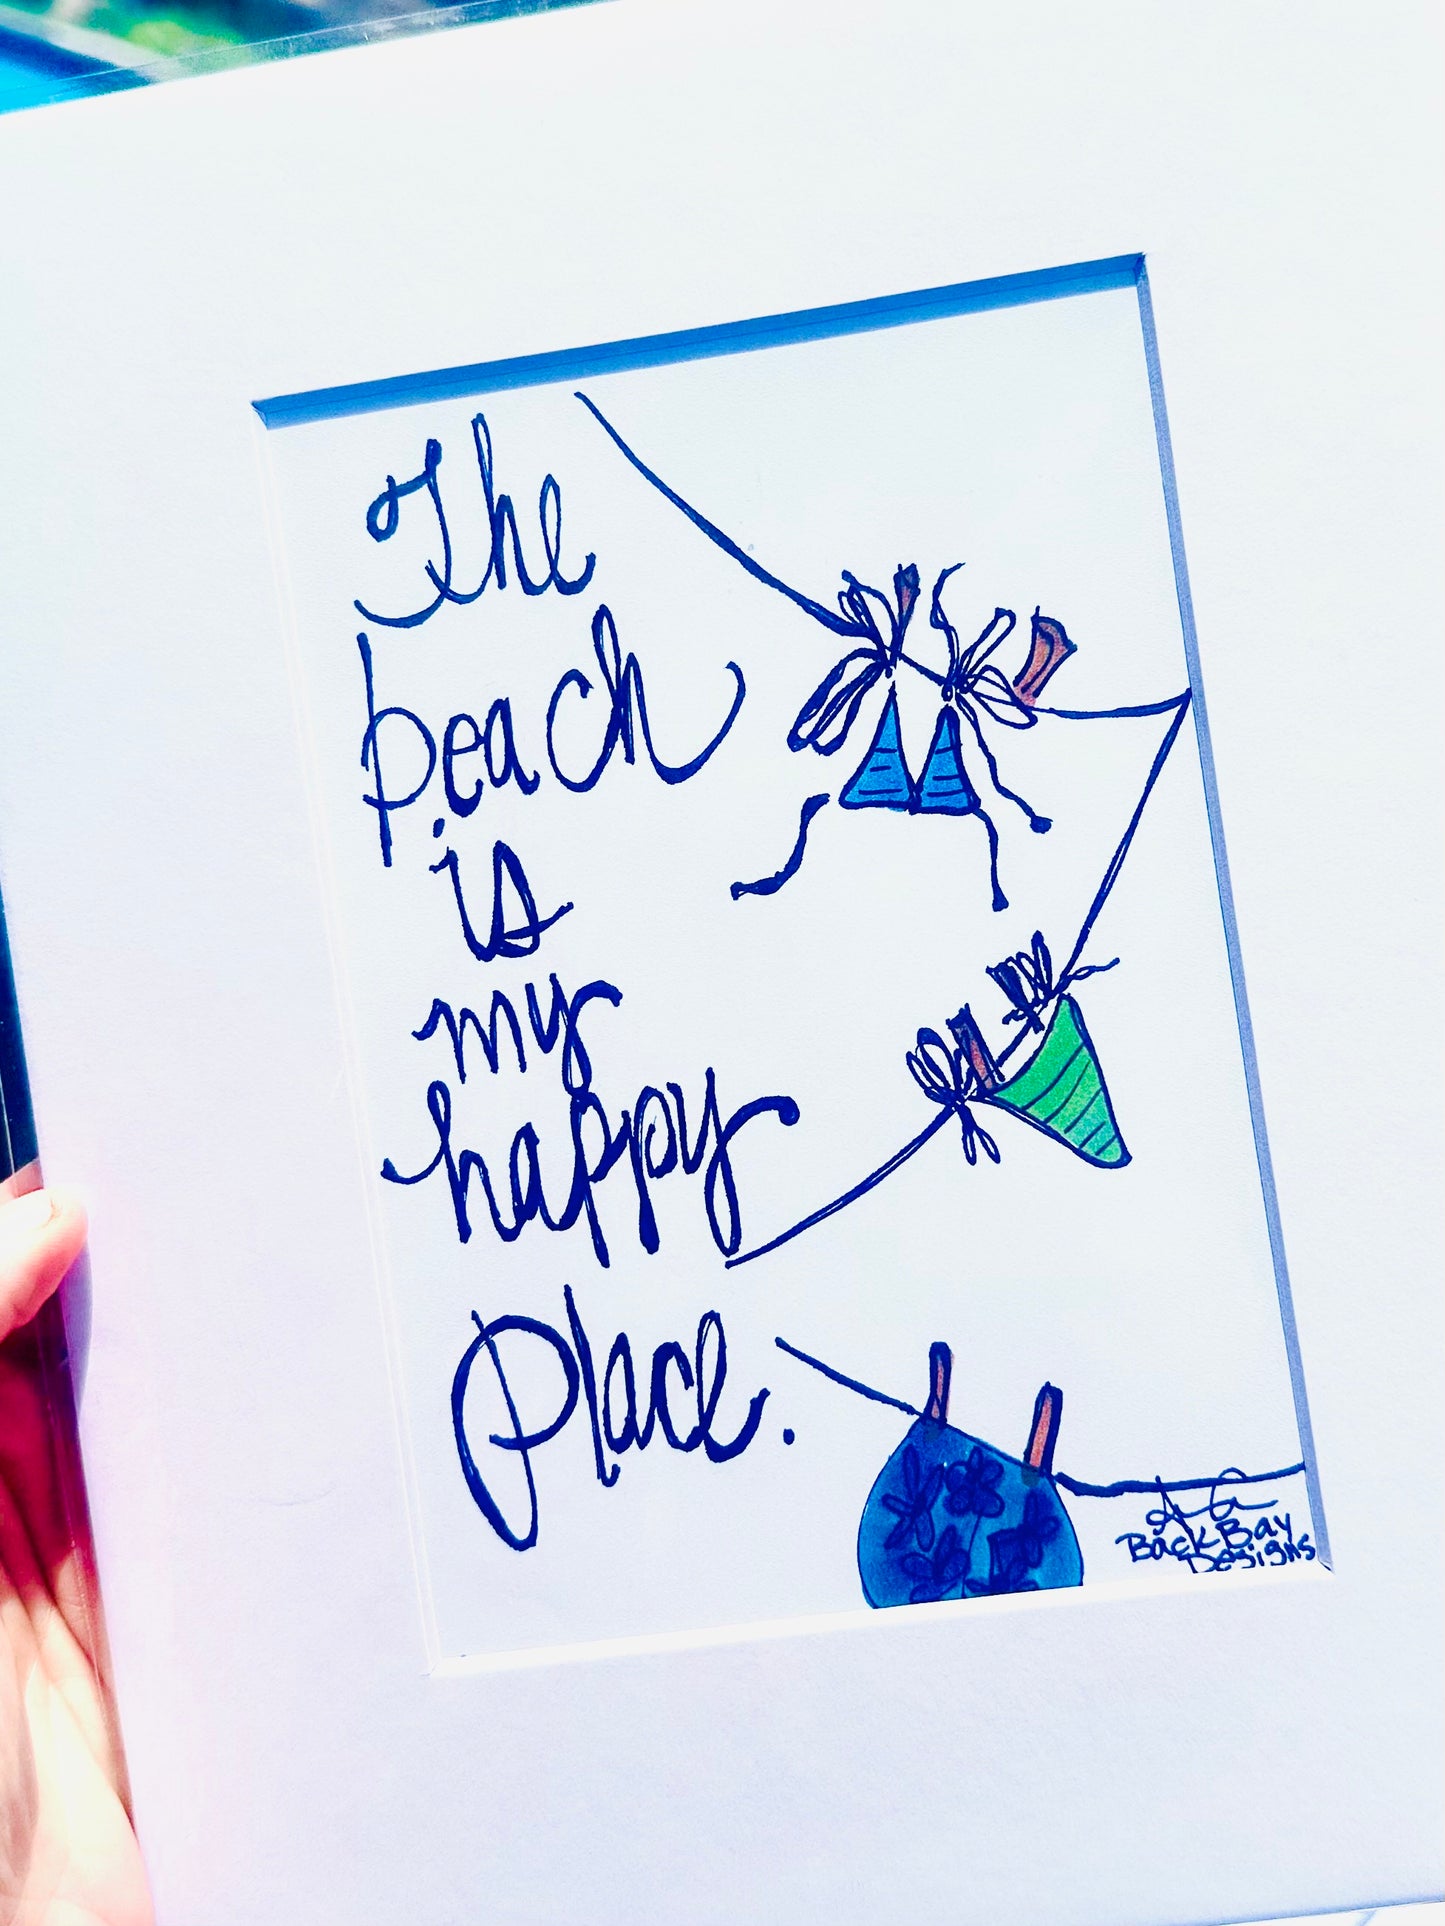 The
beach
is
my
happy
place.
Back Bay
Designs